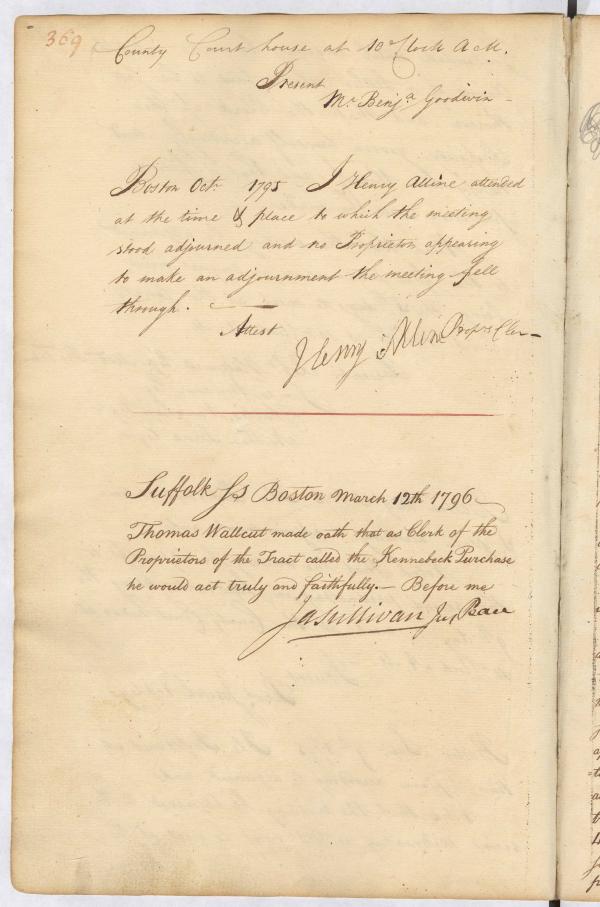 369
County Court house at 10 oClock A.M.
Present
Mr. Benja. Goodwin
Boston Octr. 1795 I Henry Alline attended
at the time & place to which the meeting
stood adjourned and no Proprietor appearing
to make an adjournment the meeting fell
through.
Attest
Henry Alline Proprs Cler
Suffolk Ss Boston March 12th 1796
Thomas Wallcut made oath that as Clerk of the
Proprietors of the Tract called the Kennebeck Purchase
he would act truly and faithfully.— Before me
Ja Sullivan Jus Pace